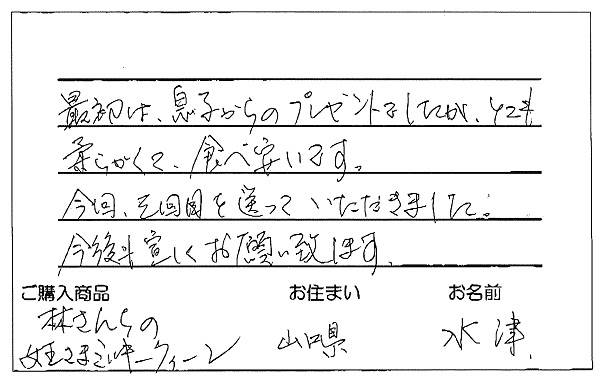 最初は、息子からのプレゼントでしたが、とても
柔らかくて、食べ安いです。
今回、2回目を送っていただきました。
今後も宜しくお願い致します。
ご購入商品 お住まい お名前
林さんちの 山口県 水津
女王さまミルキークィーン